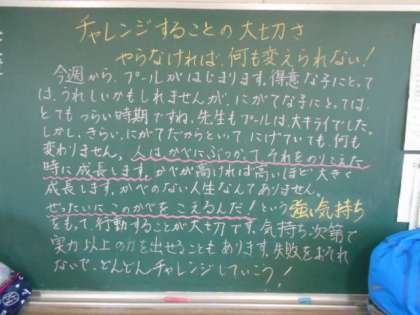 チャレンジすることの大切さ
やらなければ、何も変えられない！
今週から、プールがはじまります。得意な子にとって
は、うれしいかもしれませんが、にがてな子にとっては、
とてもつらい時期ですね。先生もプールは大キライでした。
しかし、きらい、にがてだからといって、にげていても、何も
変わりません。人はかべにぶつかって、それをのりこえた
時に成長します。かべが高ければ高いほど大きく
成長します。かべのない人生なんてありません。
ぜったいに、このかべを こえるんだ！という強い気持ち
をもって、行動することが大切です。気持ち次第で
実力以上の力を出せることもあります。失敗をおそれ
ないで、どんどんチャレンジしていこう！